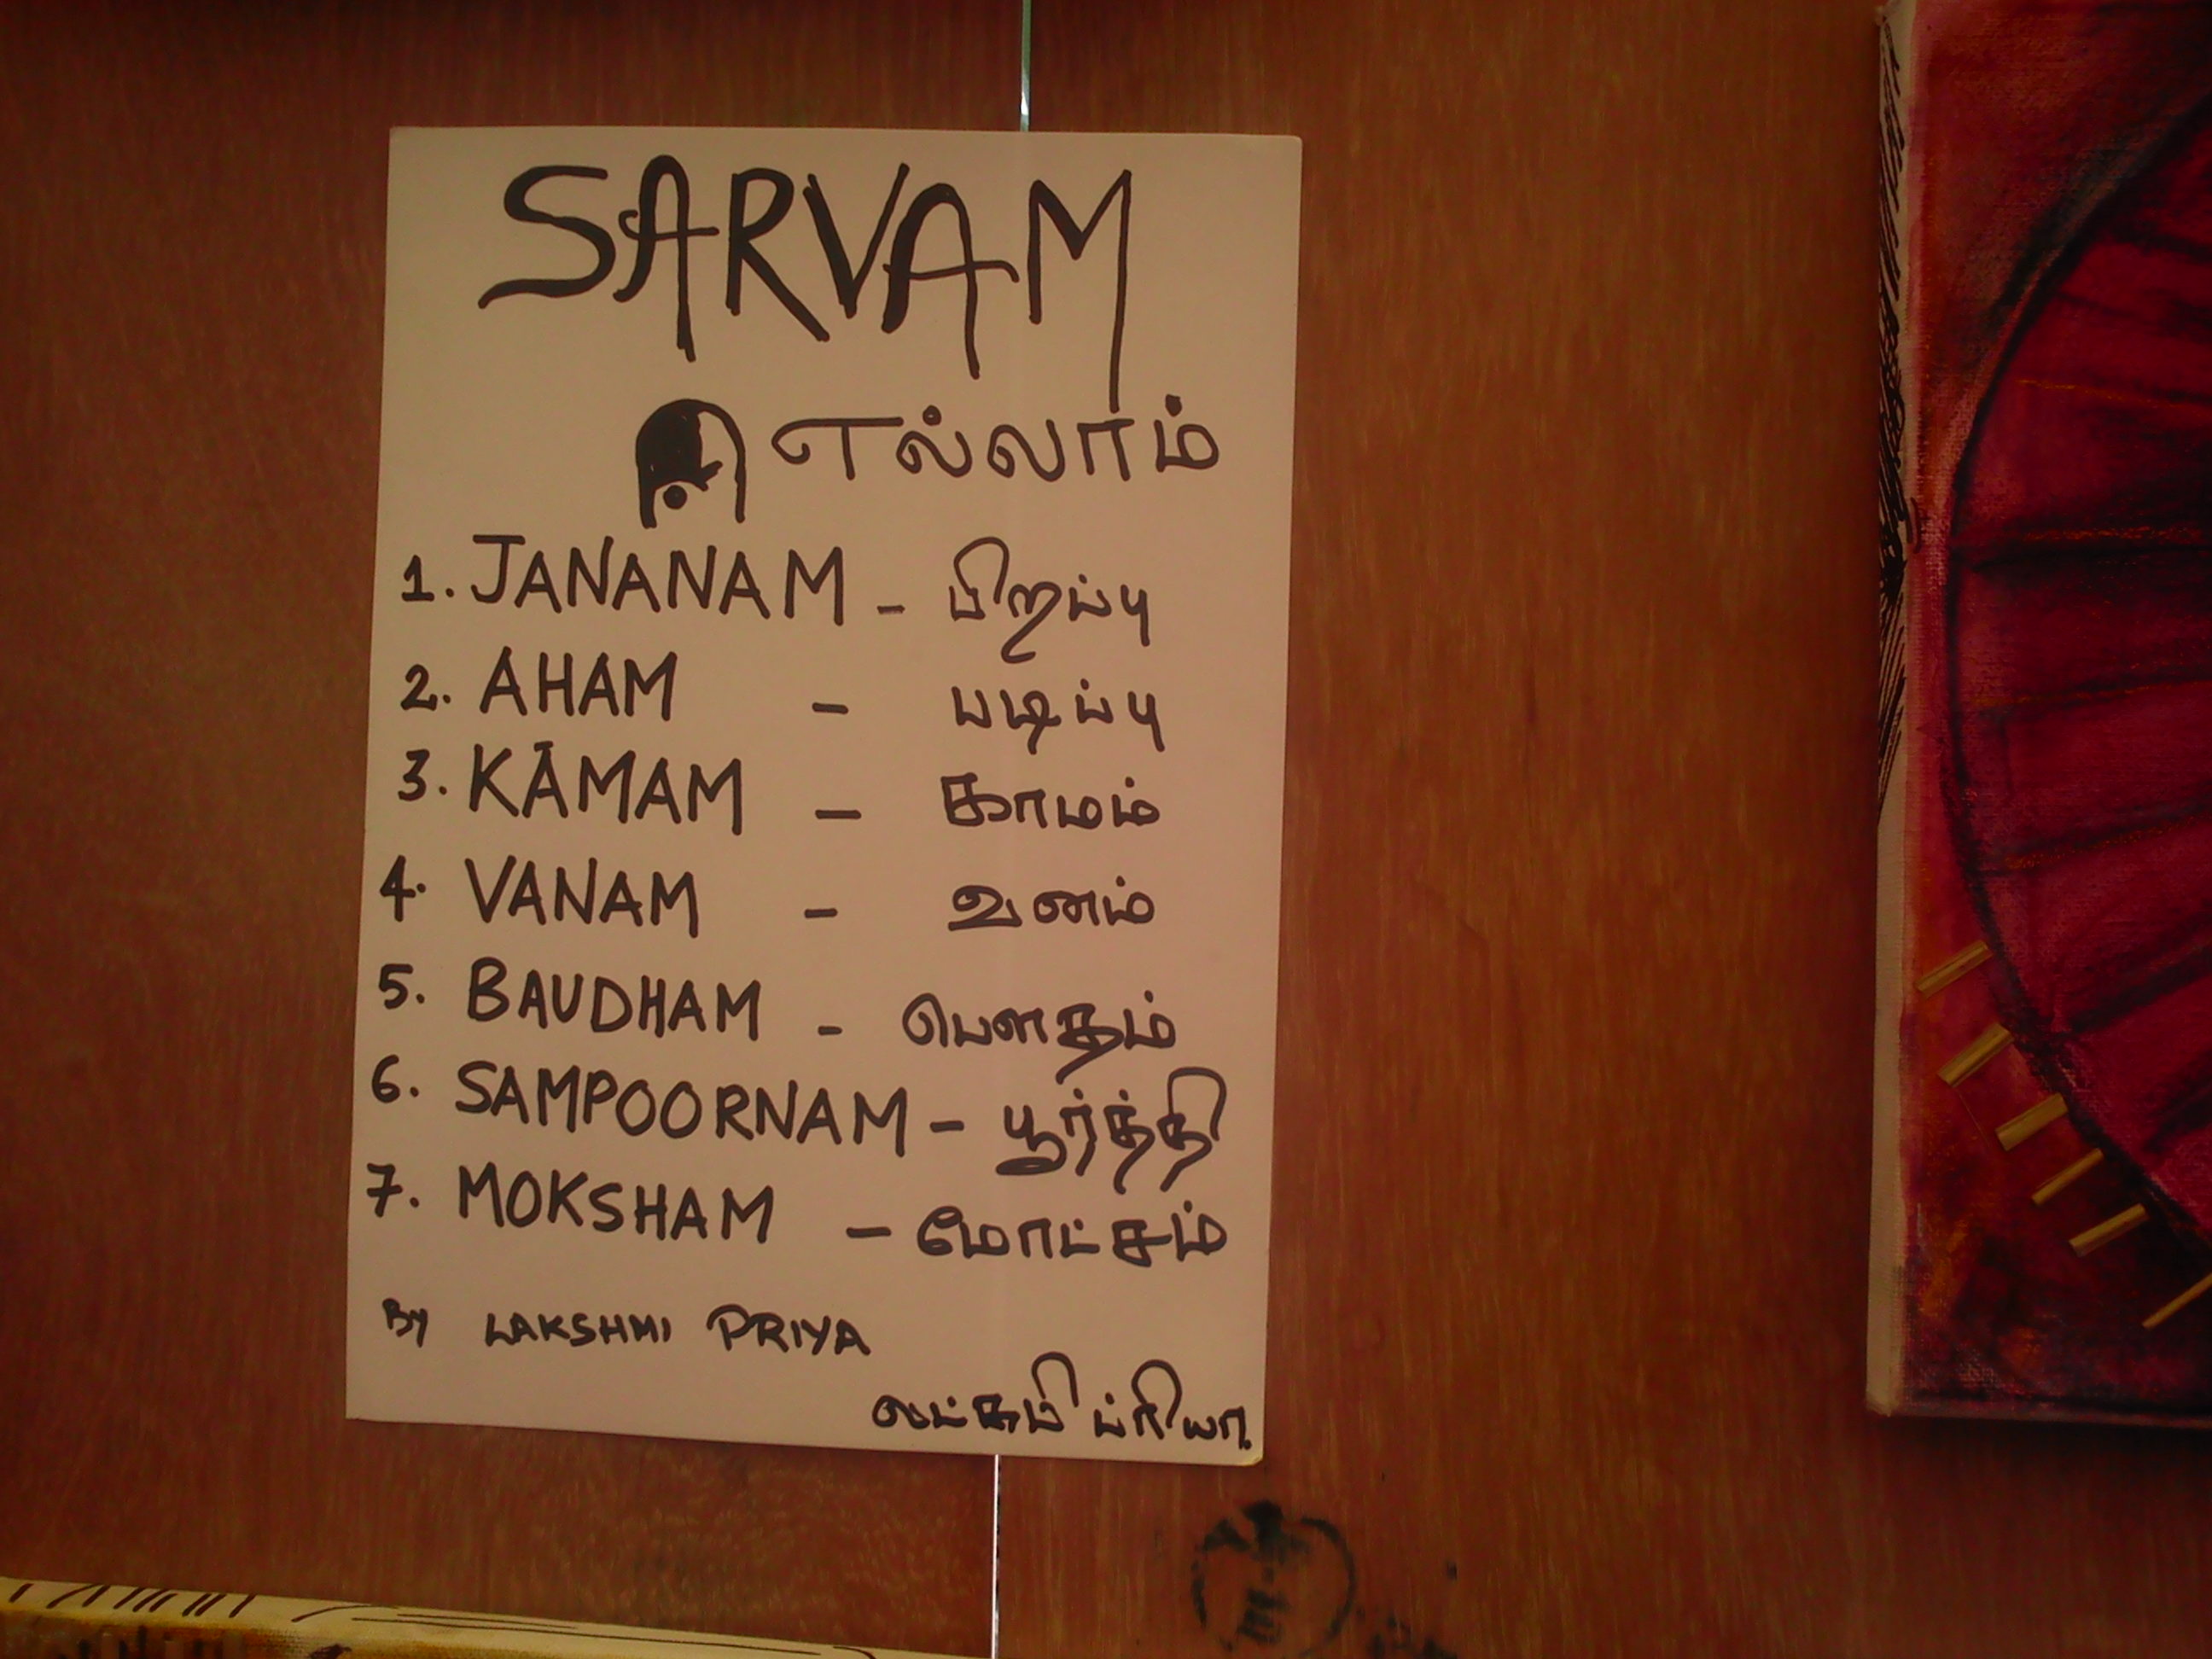 SARVAM
எல்லாம்
1. JANANAM - பிறப்பு
2. AHAM - படிப்பு
3. KĀMAM - காமம்
4. VANAM - வனம்
5. BAUDHAM - பௌதம்
6. SAMPOORNAM - பூர்த்தி
7. MOKSHAM - மோட்சம்
By LAKSHMI PRIYA
லட்சுமி ப்ரியா